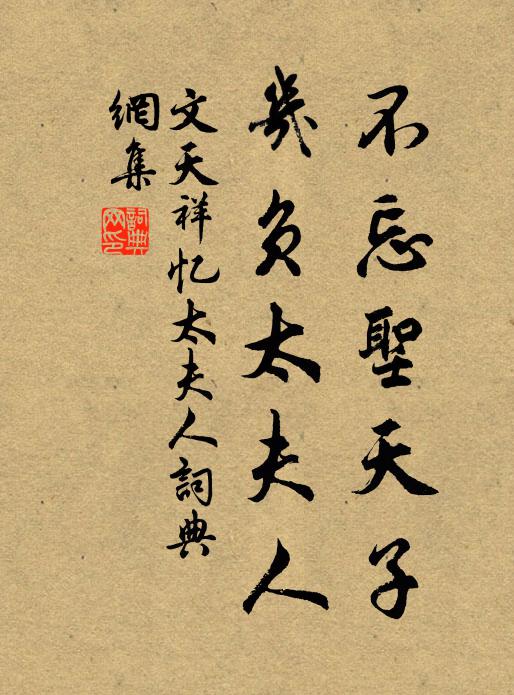 不忘聖天子
幾負太夫人
文天祥忆太夫人詞典
網集
詞典網印